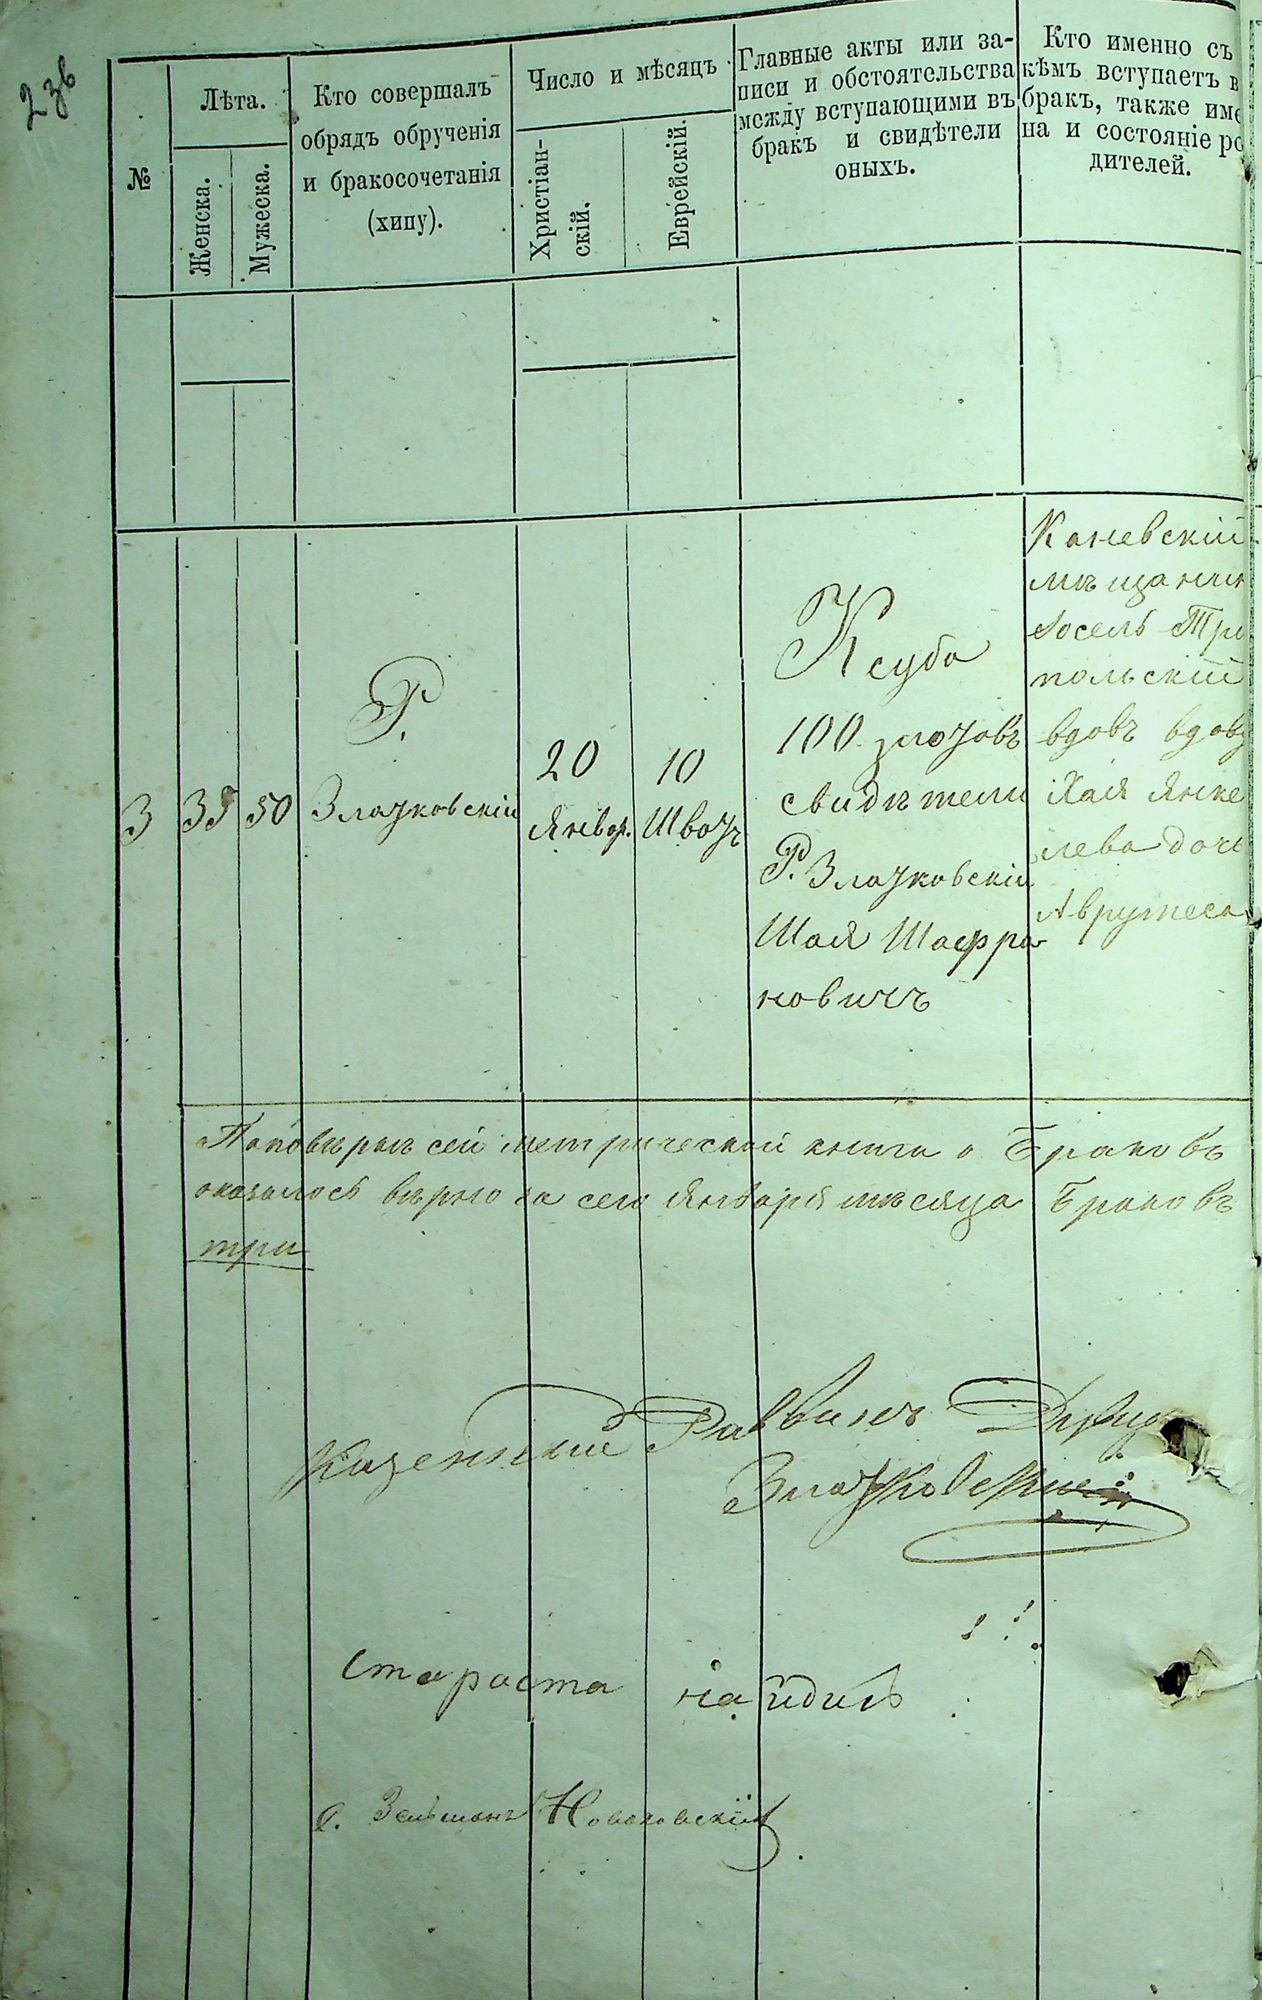 2 зв
№
Лѣта.
Женска.
Мужеска.
Кто совершалъ
обрядъ обрученія
и бракосочетанія
(хипу).
Число и мѣсяцъ
Христіан-
скій.
Еврейскій.
Главные акты или за-
писи и обстоятельства
между вступающими въ
бракъ и свидѣтели
оныхъ.
Кто именно съ
кѣмъ вступаетъ в
бракъ, также име
на и состояніе ро
дителей.
3
35
50
Р.
Златковскій
20
Январ.
10
Шватъ
Ксуба
100 злотовъ
свидѣтели
Р. Златковскій
Шая Шафра
новичъ
Каневскій
мѣщанин
Іосель Три
польскій
вдовъ вдов
Хая Янке
лева доч
Аврутеса
По повѣркѣ сей метрической книги о браковъ
оказалось вѣрно за сей Января мѣсяца браковъ
три
Казенный Раввинъ Давид
Златковскій
Староста
Зельманъ Новаковскій